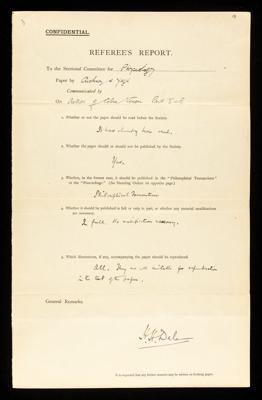 CONFIDENTIAL.
REFEREE'S REPORT.
To the Sectional Committee for Physiology
Paper by Cushny & Yagi
Communicated by
On Action of Cobra Venom Part I & II
1. Whether or not the paper should be read before the Society
It has already been read.
2. Whether the paper should or should not be published by the Society
Yes.
3. Whether, in the former case, it should be published in the "Philosophical Transactions"
or the "Proceedings" (See Standing Orders on opposite page)
Philosophical Transactions
4. Whether it should be published in full or only in part, or whether any material modifications
are necessary
In full. No modification necessary.
5. Which illustrations, if any, accompanying the paper should be reproduced
All. They are all suitable for reproduction
in the text of the paper.
General Remarks.
H. H. Dale
It is requested that any further remarks may be written on foolscap paper.